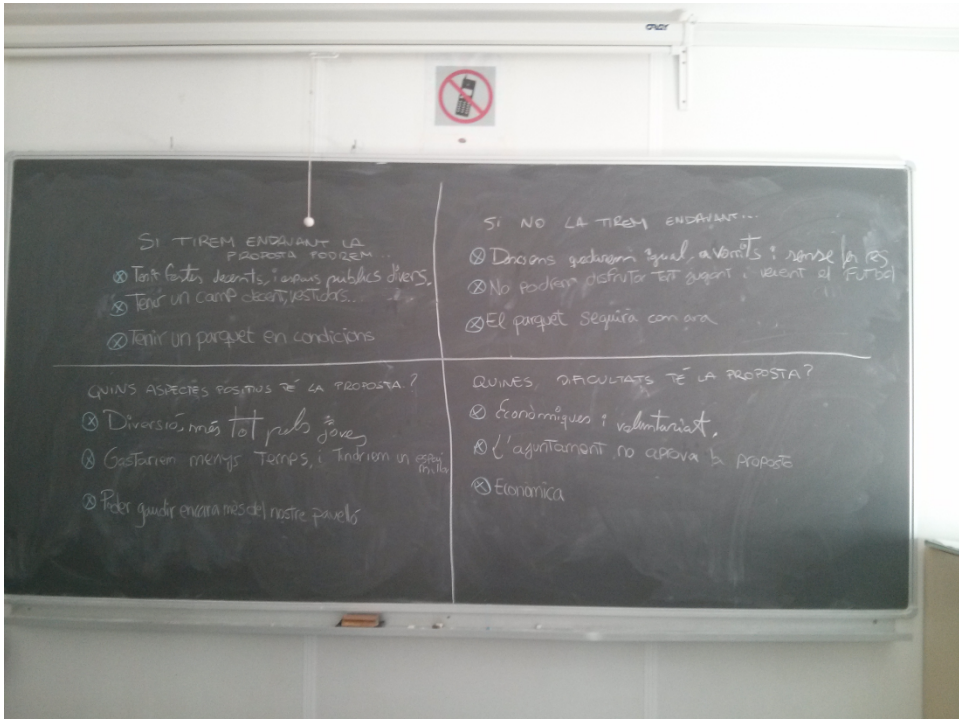 SI TIREM ENDAVANT LA
PROPOSTA PODREM...
Tenir festes decents, i espais públics divers.
Tenir un camp decent, vestidors...
Tenir un parquet en condicions
SI NO LA TIREM ENDAVANT...
quedarem igual, avorrits i sense fer res,
No podrem disfrutar tant jugant i veient el FUTBOL
El parquet seguirà com ara
QUINS ASPECTES POSITIUS TÉ LA PROPOSTA?
Diversió, més tot pels joves
Gastariem menys temps, i tindriem un espai
millor
Poder gaudir encara més del nostre pavelló
QUINES DIFICULTATS TÉ LA PROPOSTA?
Econòmiques i voluntariat.
L'ajuntament no aprova la proposta
Econòmica